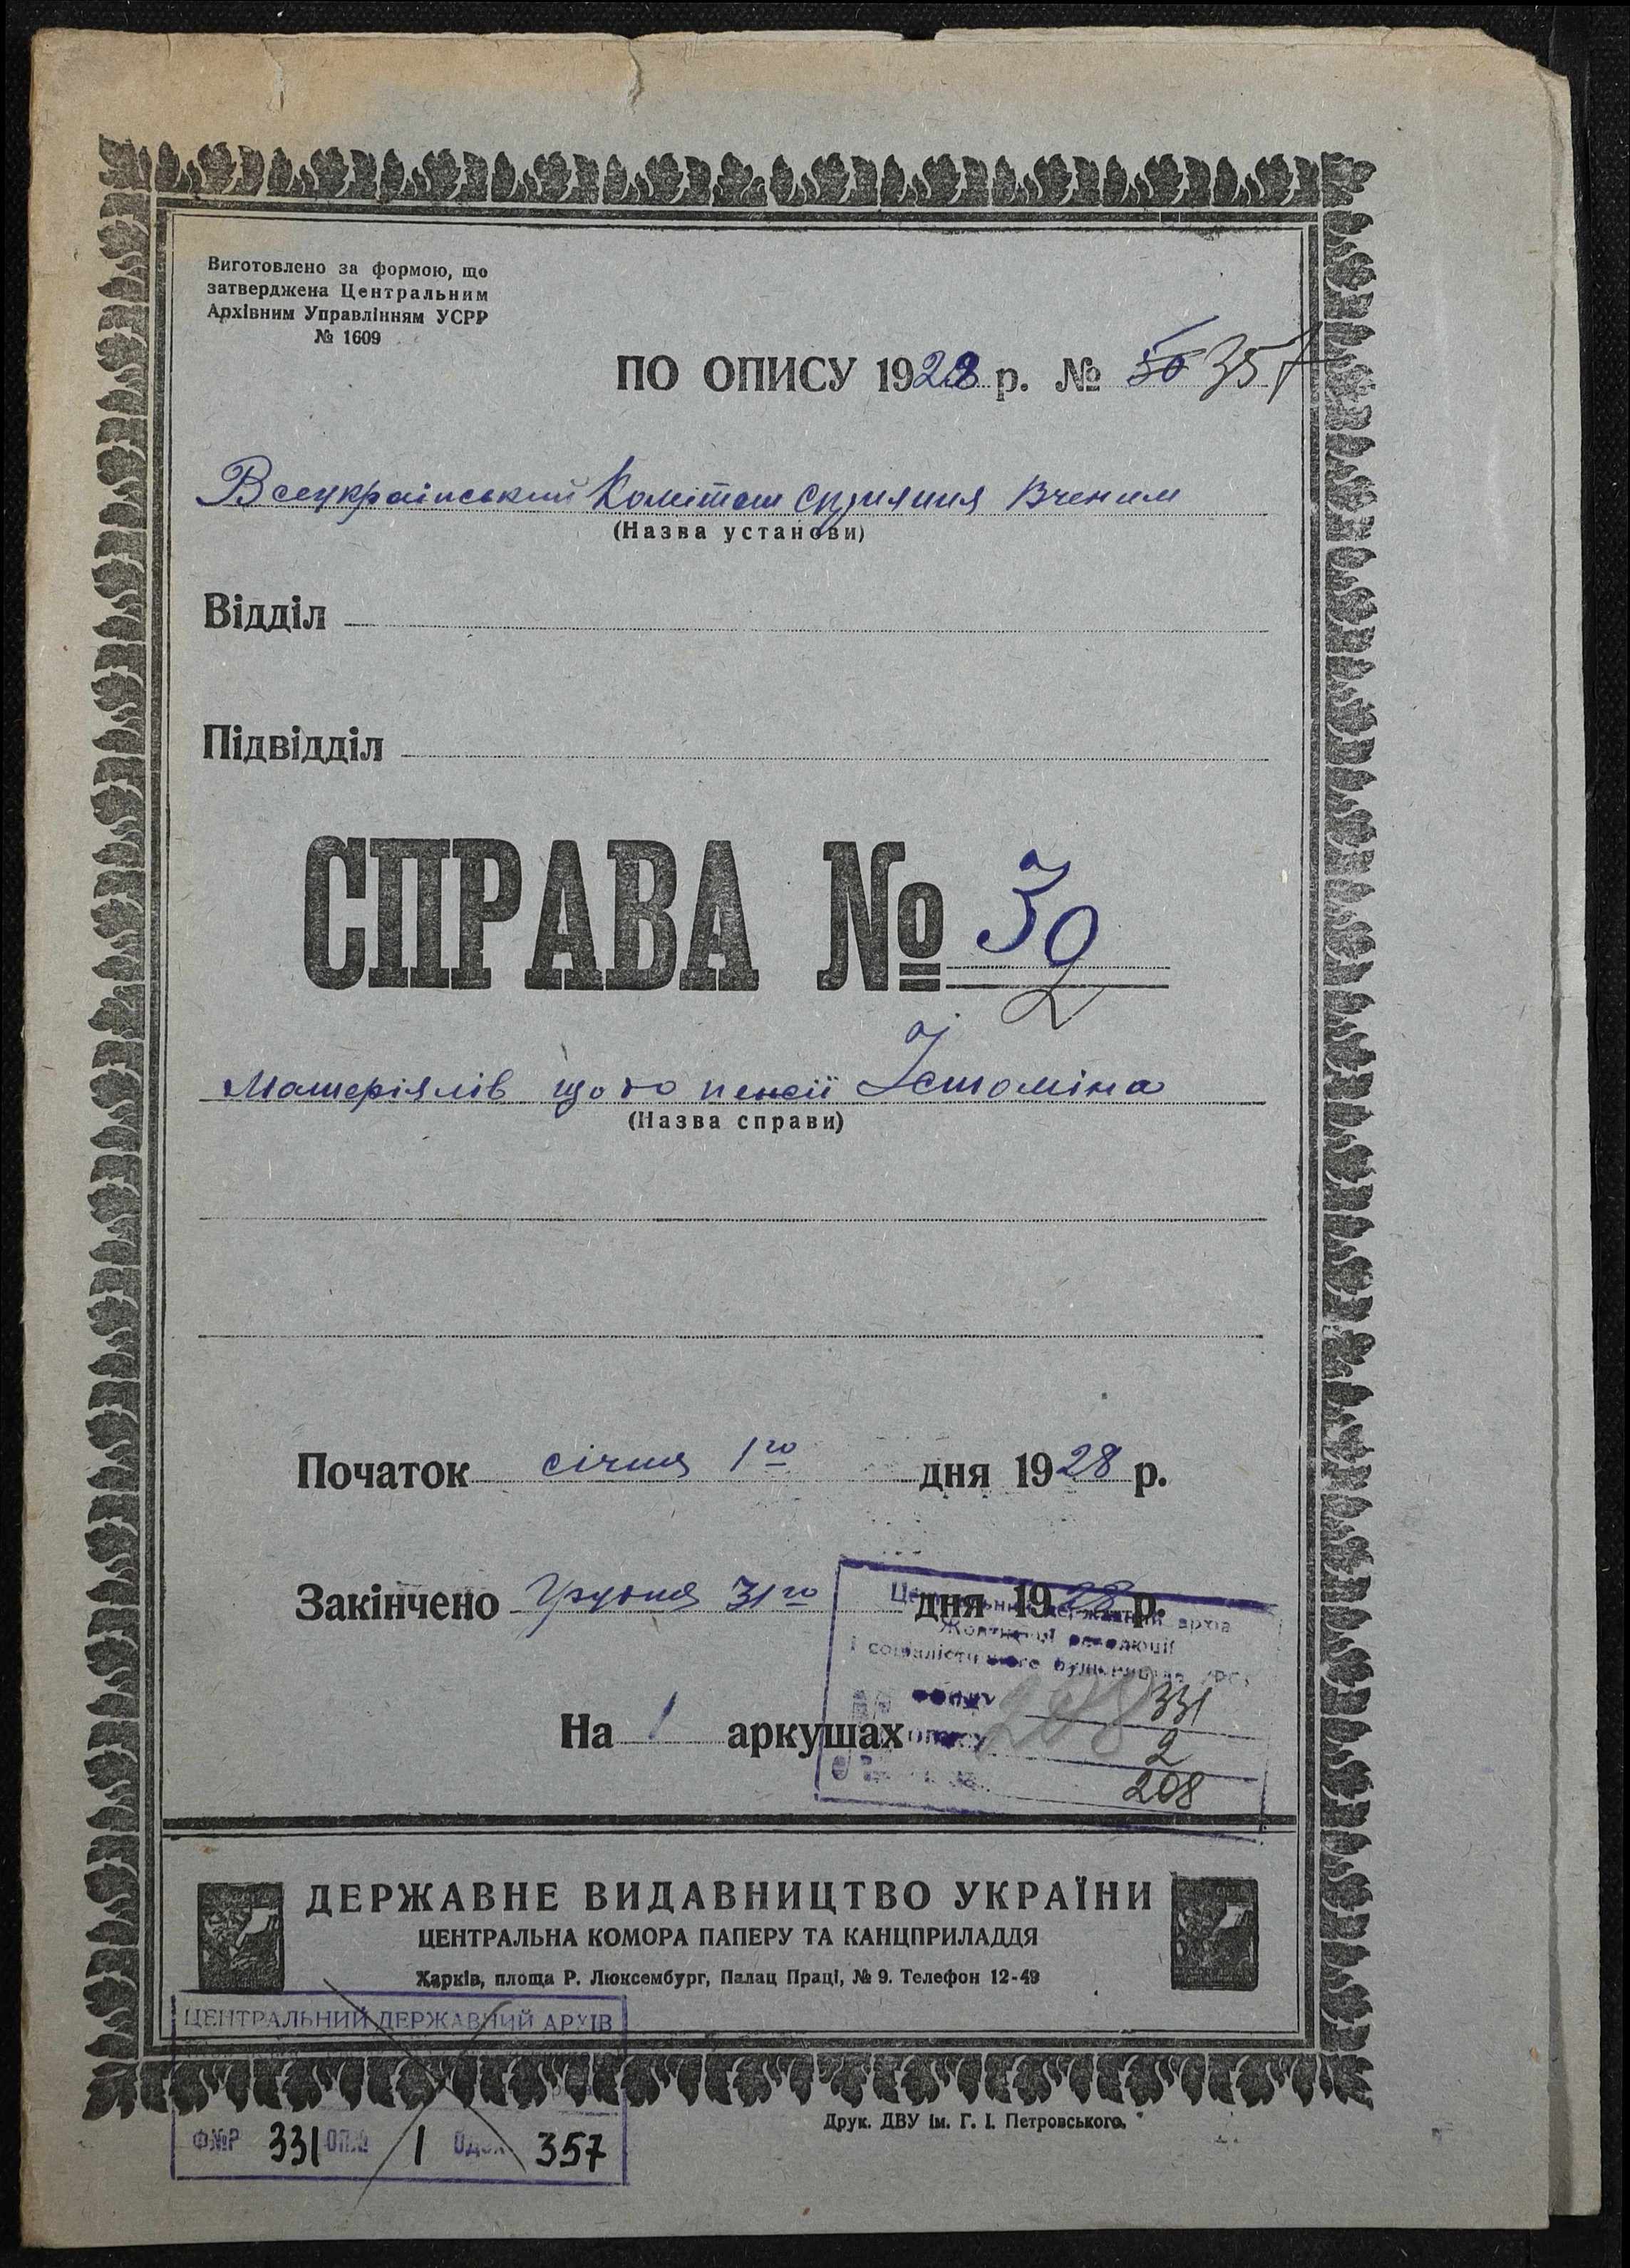 Виготовлено за формою, що
затверджена Центральним
Архівним Управлінням УСРР
№ 1609
ПО ОПИСУ 1928 р. № 50 357
Всеукраїнський Комітет Сприяння Вченим
(Назва установи)
Відділ
Підвідділ
СПРАВА № 30
2
Матеріялів щодо пенсії Істоміна
(Назва справи)
Початок січня 1го дня 1928 р.
Закінчено Грудня 31го дня 1928 р.
Центральний державний архів
Жовтневої революції
і соціалістичного будівництва УРСР
фонду 331
На 1 аркушах
опису 2
208
208
ДЕРЖАВНЕ ВИДАВНИЦТВО УКРАЇНИ
ЦЕНТРАЛЬНА КОМОРА ПАПЕРУ ТА КАНЦПРИЛАДДЯ
Харків, площа Р. Люксембург, Палац Праці, № 9. Телефон 12-49
ЦЕНТРАЛЬНИЙ ДЕРЖАВНИЙ АРХІВ
Друк. ДВУ ім. Г. І. Петровського.
Ф№Р 331 ОП.№ 1 357